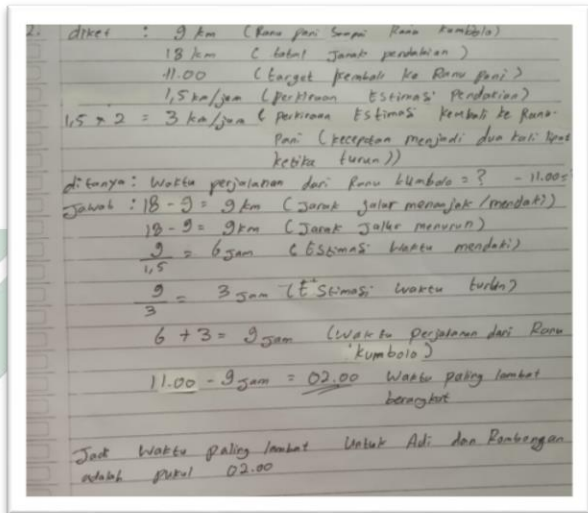 2. diket : 9 km (Ranu pani Sampai Ranu Kumbolo)
18 km (total Jarak pendakian)
11.00 (target kembali ke Ranu pani)
1,5 km/jam (perkiraan Estimasi Pendakian)
1,5 x 2 = 3 km/jam (perkiraan Estimasi kembali ke Ranu
Pani (kecepatan menjadi dua kali lipat
ketika turun))
ditanya : Waktu perjalanan dari Ranu kumbolo = ? - 11.00
Jawab : 18 - 9 = 9 km (Jarak jalur menanjak/mendaki)
18 - 9 = 9 km (Jarak Jalur menurun)
9/1,5 = 6 Jam (EStimasi Waktu mendaki)
9/3 = 3 Jam (EStimasi waktu turun)
6 + 3 = 9 Jam (Waktu perjalanan dari Ranu
kumbolo)
11.00 - 9 Jam = 02.00 Waktu paling lambat
berangkat
Jadi Waktu paling lambat Untuk Adi dan Rombongan
adalah pukul 02.00